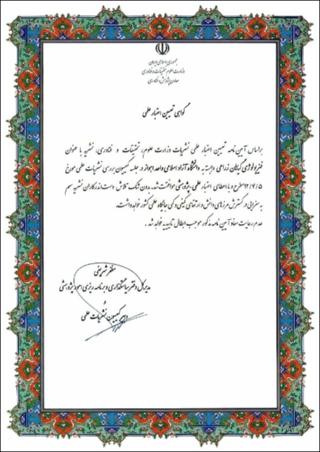 جمهوری اسلامی ایران
وزارت علوم، تحقیقات و فناوری
معاون پژوهش و فناوری
گواهی تعیین اعتبار علمی
براساس آیین نامه تعیین اعتبار علمی نشریات وزارت علوم، تحقیقات و فناوری، نشریه با عنوان
فیزیولوژی گیاهان زراعی وابسته به دانشگاه آزاد اسلامی واحد اهواز در جلسه کمیسیون بررسی نشریات علمی مورخ
مطرح و با اعطای اعتبار علمی پژوهشی موافقت شد. بدون شک تلاش دست اندرکاران نشریه سهم
به سزایی در گسترش مرزهای دانش و ارتقای کیفی و کمی جایگاه علمی کشور خواهد داشت.
عدم رعایت مفاد آیین نامه مذکور موجب ابطال تاییدیه خواهد شد.
مدیرکل دفتر سیاستگذاری و برنامه ریزی امور پژوهشی
و
کمیسیون نشریات علمی